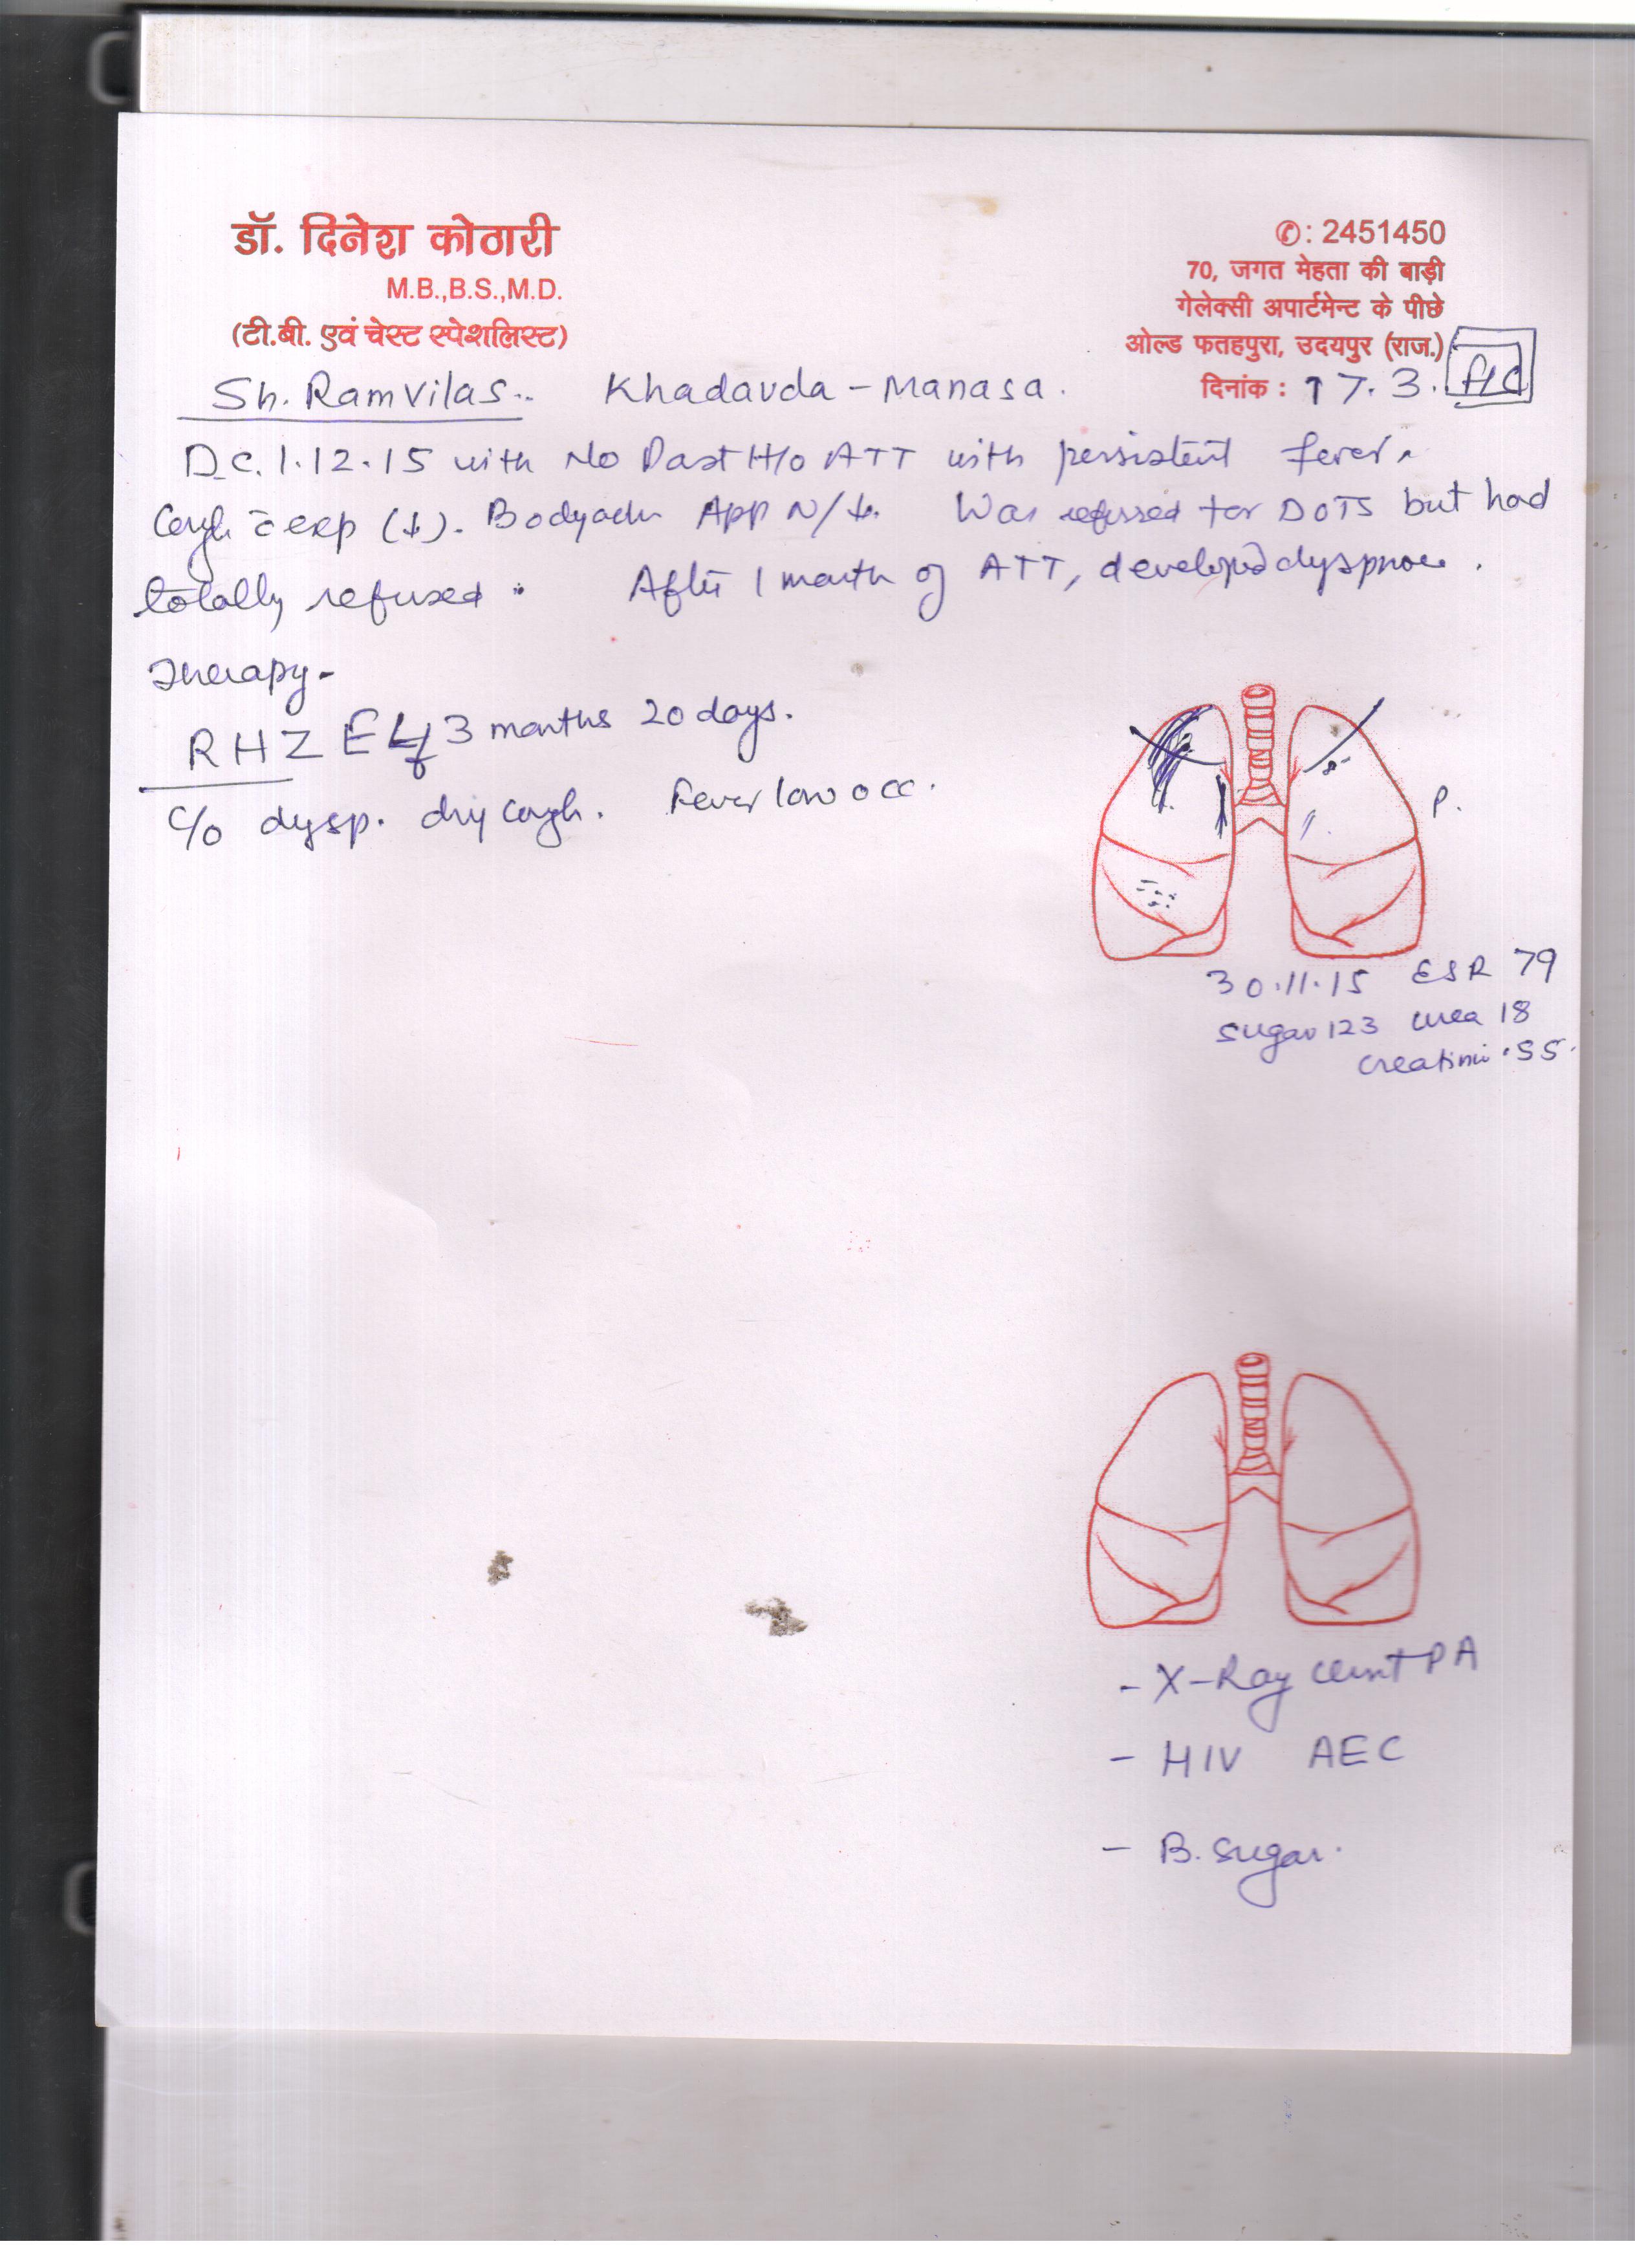 डॉ. दिनेश कोठारी
M.B.,B.S.,M.D.
(टी.बी. एवं चेस्ट स्पेशलिस्ट)
✆: 2451450
70, जगत मेहता की बाड़ी
गेलेक्सी अपार्टमेन्ट के पीछे
ओल्ड फतहपुरा, उदयपुर (राज.)
दिनांक : 17.3.
Sh. Ramvilas.. Khadavda - Manasa.
D.C. 1.12.15 with No Past H/o ATT with persistent fever,
Cough c̄ exp (↓). Bodyache App N/↓. Was referred for DOTS but had
totally refused. After 1 month of ATT, developed dyspnoe.
Therapy-
RHZE 3 months 20 days.
C/o dysp. dry cough. Fever low occ.
P.
30.11.15 ESR 79
Sugar 123 urea 18
creatini .55
- X-Ray chest PA
- HIV AEC
- B. Sugar.